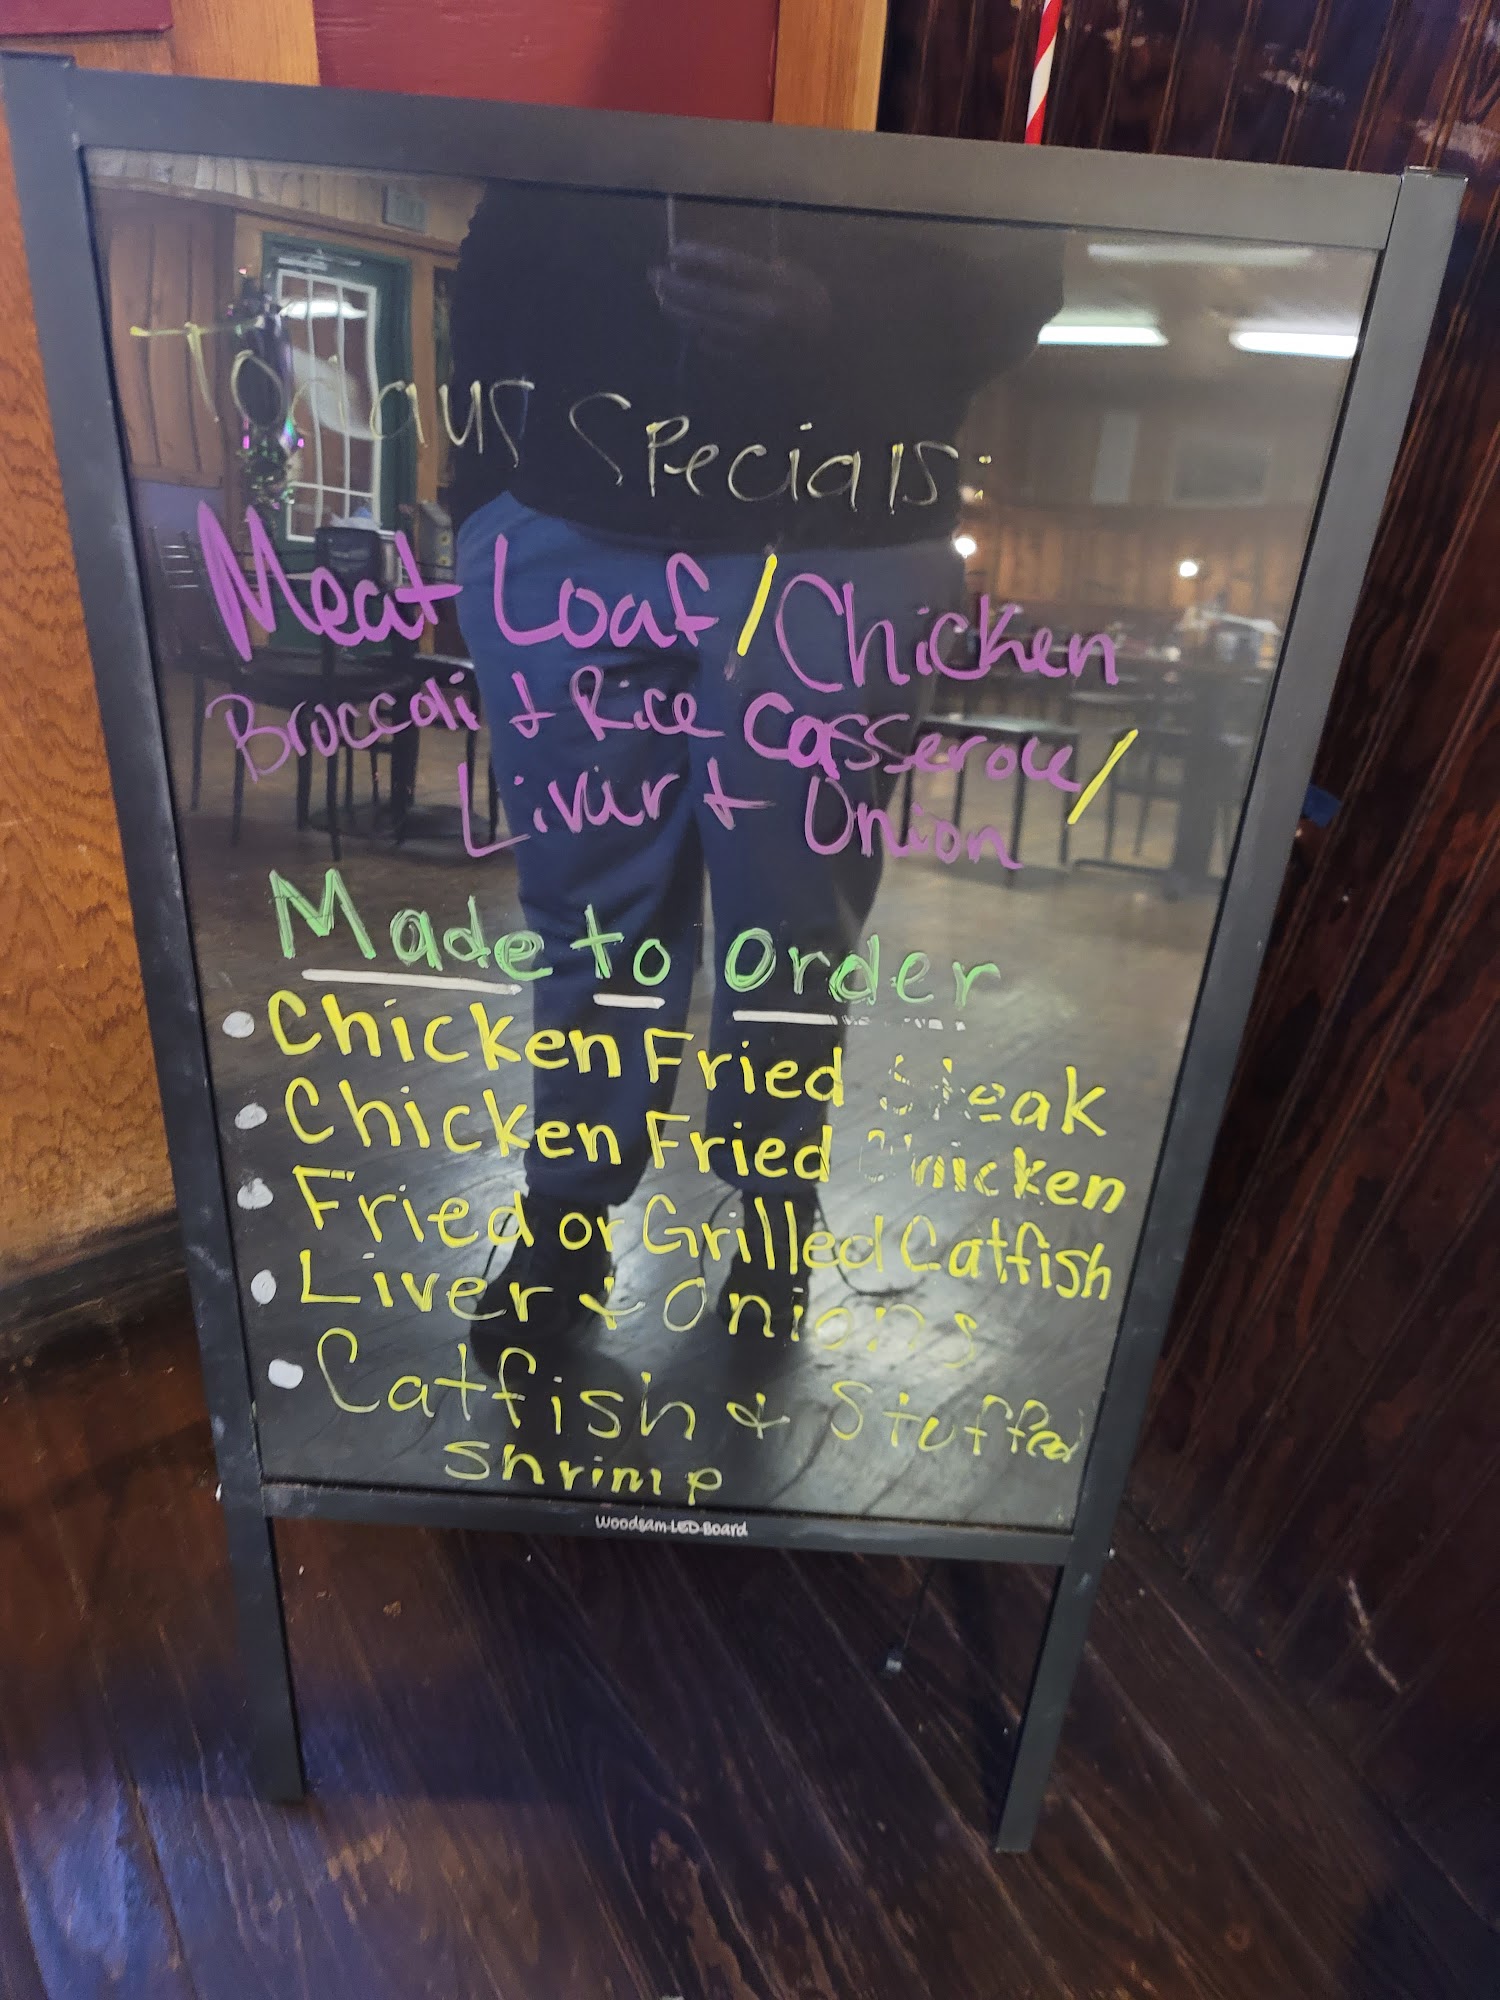 Todays Specials:
Meat Loaf/Chicken
Broccoli & Rice Casserole/
Liver & Onion
Made to Order
• Chicken Fried Steak
• Chicken Fried Chicken
• Fried or Grilled Catfish
• Liver & Onions
• Catfish & Stuffed
Shrimp
Woodsam-LED-Board